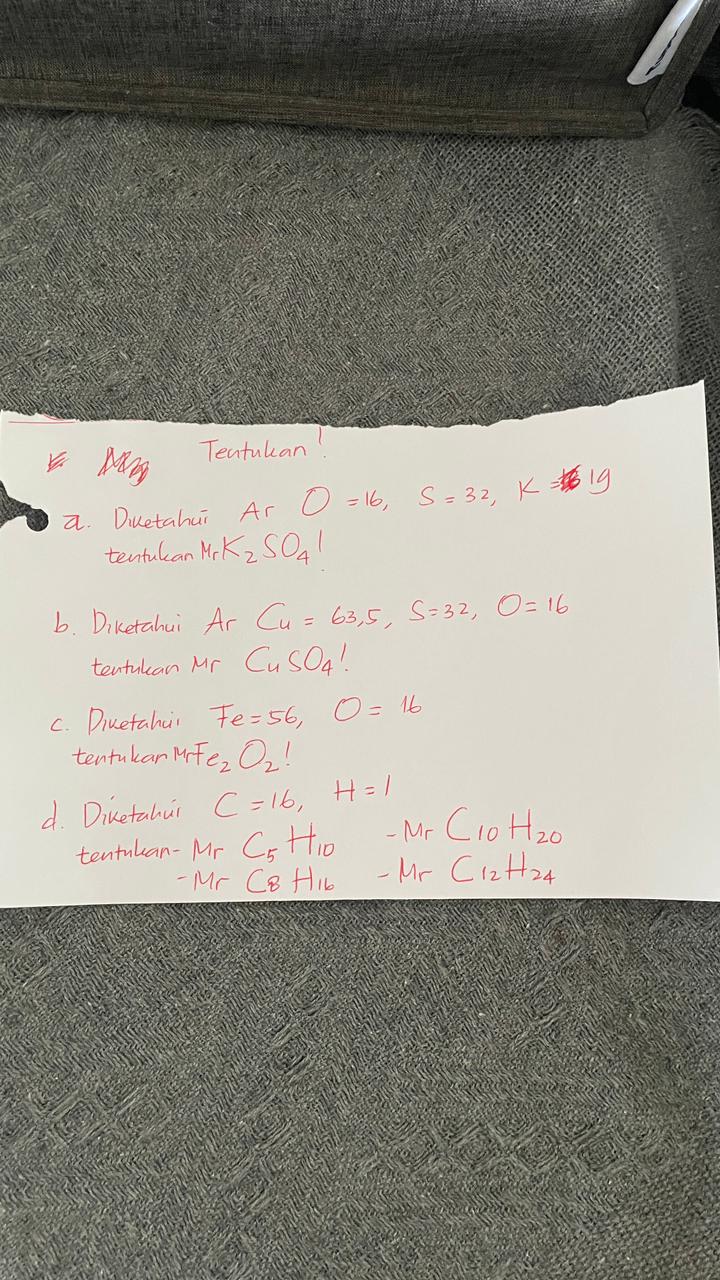 Tentukan!
a. Diketahui Ar O = 16, S = 32, K = 19
tentukan Mr K₂SO₄!
b. Diketahui Ar Cu = 63,5, S = 32, O = 16
tentukan Mr CuSO₄!
c. Diketahui Fe = 56, O = 16
tentukan Mr Fe₂O₂!
d. Diketahui C = 16, H = 1
tentukan - Mr C₅H₁₀ - Mr C₁₀H₂₀
- Mr C₈H₁₆ - Mr C₁₂H₂₄